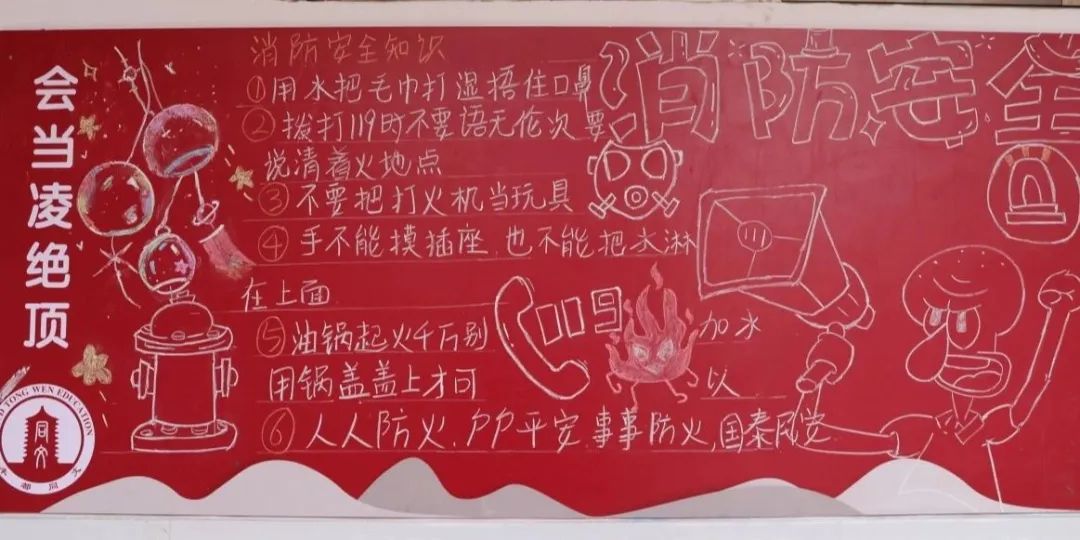 会当凌绝顶
消防安全知识
①用水把毛巾打湿捂住口鼻
②拨打119时不要语无伦次要
说清着火地点
③不要把打火机当玩具
④手不能摸插座 也不能把水淋
在上面
⑤油锅起火千万别 加水
用锅盖盖上才可 以
⑥人人防火,户户平安,事事防火,国泰民安
消防安全
119
TONG WEN EDUCATION
同文